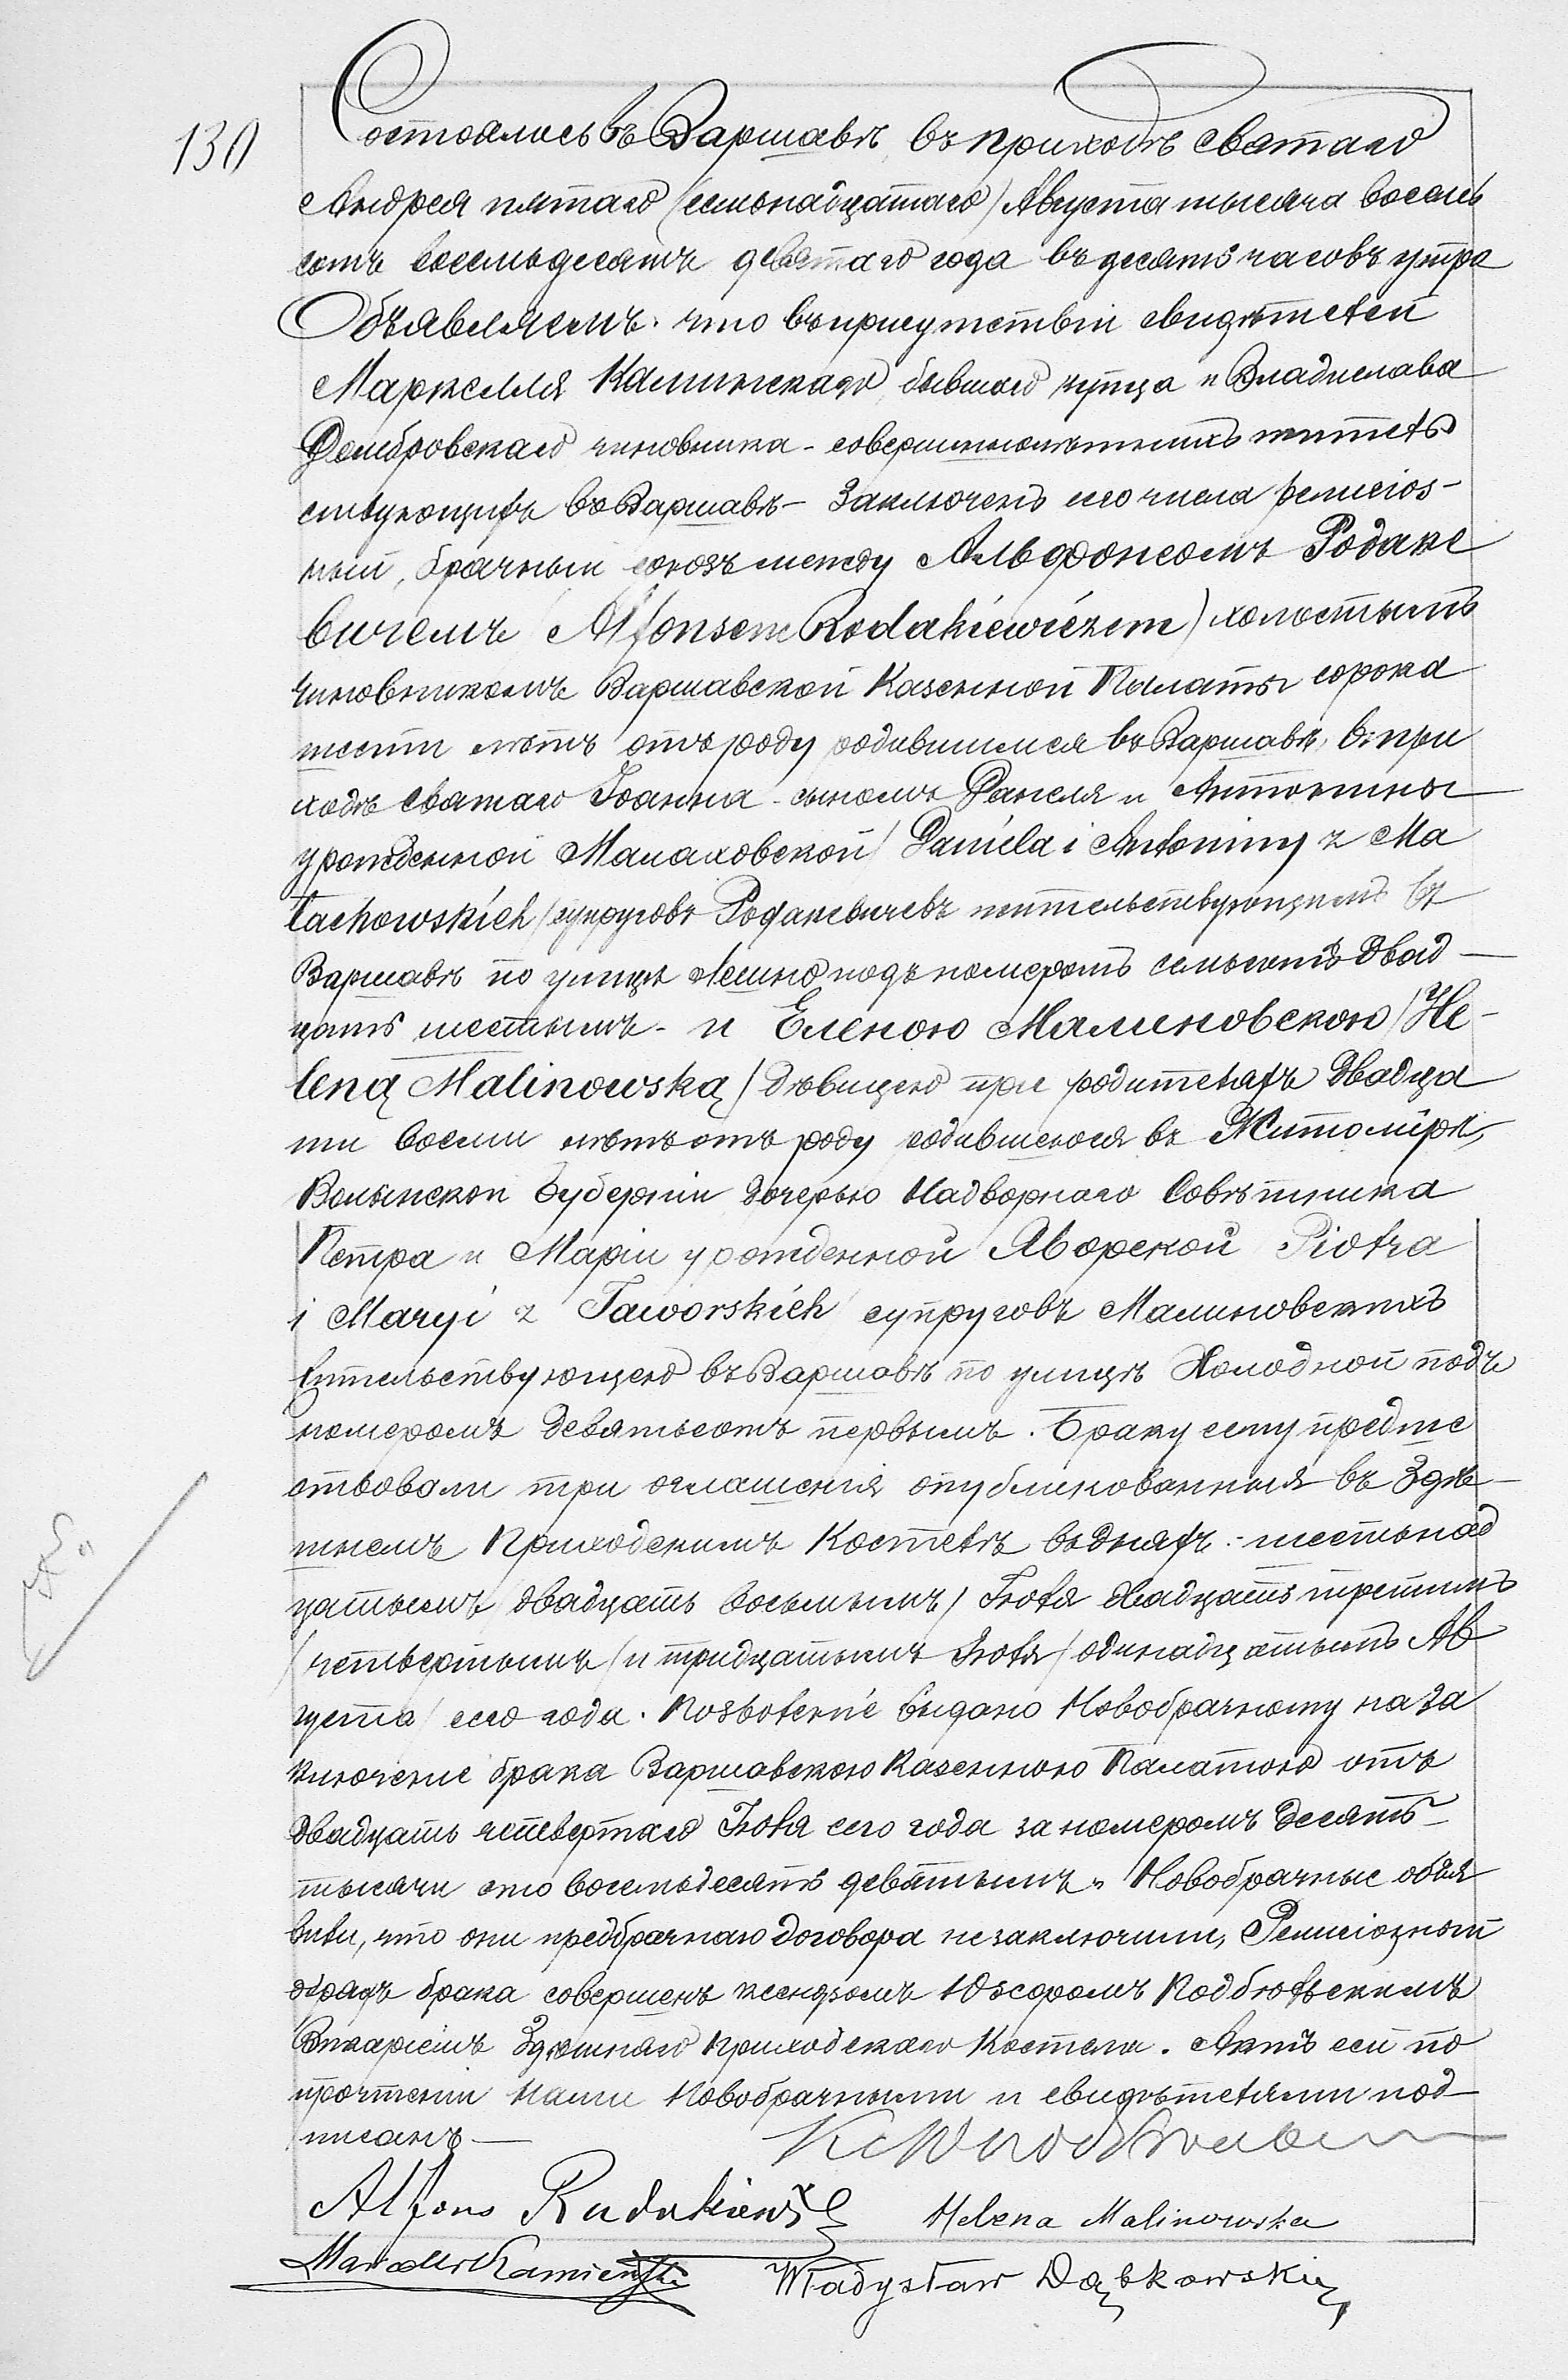 130
Состоялось въ Варшавѣ, въ приходѣ святаго
Андрея пятаго (семьнадцатаго) Августа тысяча восемь
сотъ восемьдесятъ девятаго года въ десять часовъ утра
Объявляемъ что въ присутствіи свидѣтелей
Маркелля Каминскаго, бывшаго купца и Владислава
Домбровскаго чиновника - совершеннолѣтнихъ житель
ствующихъ въ Варшавѣ - заключенъ сего числа религіоз-
ный, брачный союзъ между Альфонсомъ Родаке
вичемъ (Alfonsem Rodakiewiczem) холостымъ
чиновникомъ Варшавской Казенной Палаты сорока
шести лѣтъ отъ роду родившимся въ Варшавѣ, въ при
ходѣ святаго Іоанна - сыномъ Данеля и Антонины
урожденной Малаховской (Daniela i Antoniny z Ma
łachowskich) супруговъ Родакевичевъ жительствующимъ въ
Варшавѣ по улицѣ Лешно подъ номеромъ семьсотъ двад-
цать шестымъ - и Еленою Малиновскою (He-
leną Malinowską) дѣвицею при родителяхъ двадца
ти восьми лѣтъ отъ роду родившеюся въ Житоміре,
Волынской Губерніи дочерью Надворнаго Совѣтника
Петра и Маріи урожденной Яворской Piotra
i Maryi z Jaworskich супруговъ Малиновскихъ
жительствующею въ Варшавѣ по улицѣ Холодной подъ
номеромъ девятьсотъ первымъ. Браку сему предше
ствовали три оглашенія опубликованныя въ Здѣ-
шнемъ Приходскимъ Костелѣ въ дняхъ: шестьнад
цатымъ (двадцать восьмымъ) Іюля двадцать третьимъ
(четвертымъ) и тридцатымъ Іюля (одинадцатымъ Ав
густа) сего года. Позволеніе выдано Новобрачному на за
ключеніе брака Варшавскою Казенною Палатою отъ
двадцать четвертаго Іюля сего года за номеромъ десять
тысячи сто восемьдесятъ девятымъ. Новобрачные объя
вили, что они предбрачнаго договора незаключили, Религіозный
обрядъ брака совершенъ ксендзомъ Подбѣльскимъ
Викаріемъ Здѣшняго Приходскаго Костела. Актъ сей по
прочтеніи Нами Новобрачными и свидѣтелями под-
писанъ -
Alfons Rodakiewicz Helena Malinowska
Marcelli Kamieński Władysław Dąbkowski